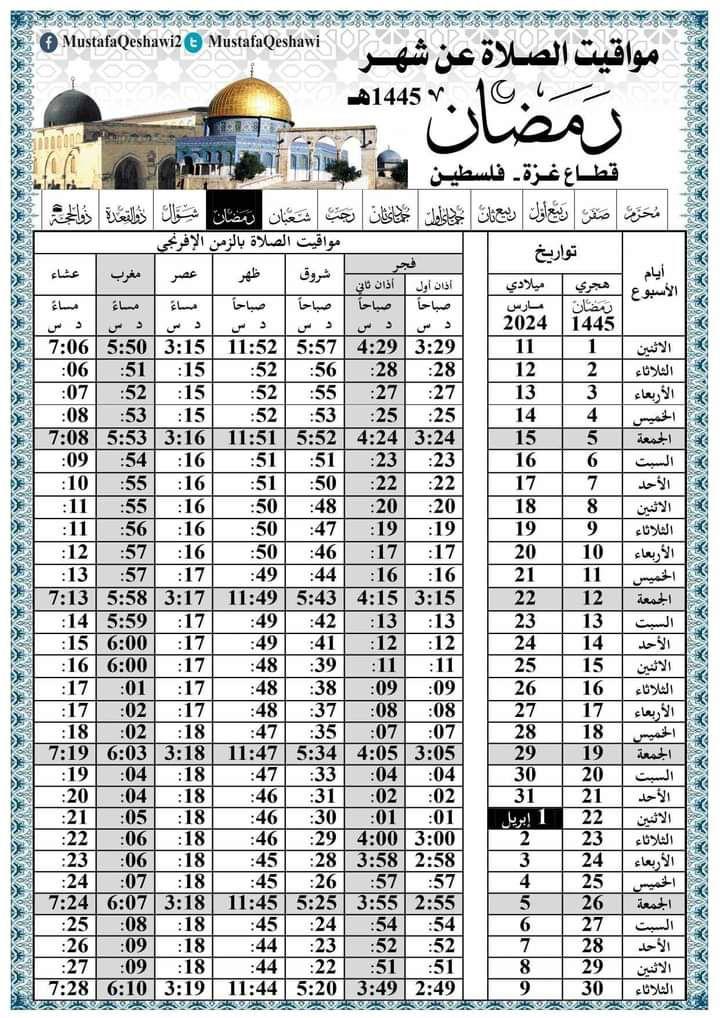 MustafaQeshawi2 MustafaQeshawi
مواقيت الصلاة عن شهر
رمضان 1445هـ
قطاع غزة - فلسطين
محرم صفر ربيع أول ربيع ثان جمادى أول جمادى ثان رجب شعبان رمضان شوال ذو القعدة ذو الحجة
أيام الأسبوع تواريخ مواقيت الصلاة بالزمن الإفرنجي
هجري ميلادي فجر شروق ظهر عصر مغرب عشاء
أذان أول أذان ثاني
رمضان 1445 مارس 2024 صباحاً صباحاً صباحاً صباحاً مساءً مساءً مساءً
د س د س د س د س د س د س د س
الاثنين 1 11 3:29 4:29 5:57 11:52 3:15 5:50 7:06
الثلاثاء 2 12 :28 :28 :56 :52 :15 :51 :06
الأربعاء 3 13 :27 :27 :55 :52 :15 :52 :07
الخميس 4 14 :25 :25 :53 :52 :15 :53 :08
الجمعة 5 15 3:24 4:24 5:52 11:51 3:16 5:53 7:08
السبت 6 16 :23 :23 :51 :51 :16 :54 :09
الأحد 7 17 :22 :22 :50 :51 :16 :55 :10
الاثنين 8 18 :20 :20 :48 :50 :16 :55 :11
الثلاثاء 9 19 :19 :19 :47 :50 :16 :56 :11
الأربعاء 10 20 :17 :17 :46 :50 :16 :57 :12
الخميس 11 21 :16 :16 :44 :49 :17 :57 :13
الجمعة 12 22 3:15 4:15 5:43 11:49 3:17 5:58 7:13
السبت 13 23 :13 :13 :42 :49 :17 5:59 :14
الأحد 14 24 :12 :12 :41 :49 :17 6:00 :15
الاثنين 15 25 :11 :11 :39 :48 :17 6:00 :16
الثلاثاء 16 26 :09 :09 :38 :48 :17 :01 :17
الأربعاء 17 27 :08 :08 :37 :48 :17 :02 :17
الخميس 18 28 :07 :07 :35 :47 :18 :02 :18
الجمعة 19 29 3:05 4:05 5:34 11:47 3:18 6:03 7:19
السبت 20 30 :04 :04 :33 :47 :18 :04 :19
الأحد 21 31 :02 :02 :31 :46 :18 :04 :20
الاثنين 22 1 إبريل :01 :01 :30 :46 :18 :05 :21
الثلاثاء 23 2 3:00 4:00 :29 :46 :18 :06 :22
الأربعاء 24 3 2:58 3:58 :28 :45 :18 :06 :23
الخميس 25 4 :57 :57 :26 :45 :18 :07 :24
الجمعة 26 5 2:55 3:55 5:25 11:45 3:18 6:07 7:24
السبت 27 6 :54 :54 :24 :45 :18 :08 :25
الأحد 28 7 :52 :52 :23 :44 :18 :09 :26
الاثنين 29 8 :51 :51 :22 :44 :18 :09 :27
الثلاثاء 30 9 2:49 3:49 5:20 11:44 3:19 6:10 7:28